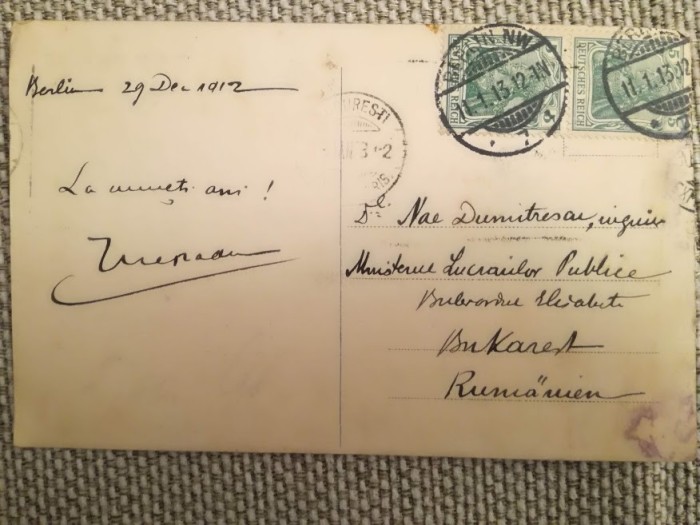 Berlin 29 Dec 1912
La mulți ani!
DEUTSCHES REICH
BERLIN NW
11.1.13.12-1N
7 d
11.1.13.12
Dl. Nae Dumitrescu, inginer
Ministerul Lucrarilor Publice
Bulevardul Elisabeta
Bukarest
Rumänien